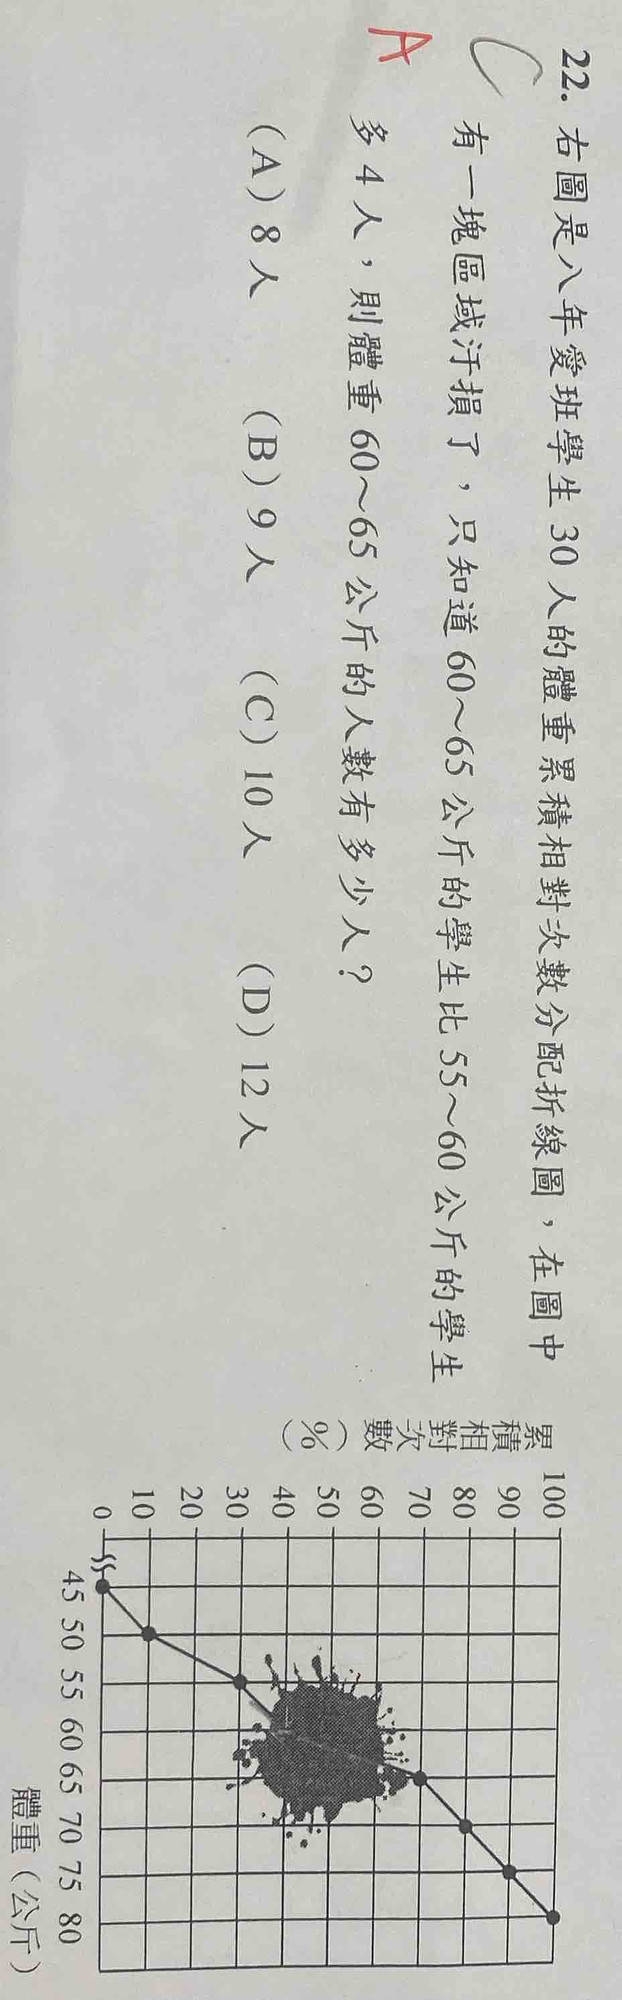 C
A
22. 右圖是八年愛班學生 30 人的體重累積相對次數分配折線圖，在圖中
有一塊區域汙損了，只知道 60～65 公斤的學生比 55～60 公斤的學生
多 4 人，則體重 60～65 公斤的人數有多少人？
(A) 8 人 (B) 9 人 (C) 10 人 (D) 12 人
累積相對次數（%）
100
90
80
70
60
50
40
30
20
10
0
45 50 55 60 65 70 75 80
體重（公斤）